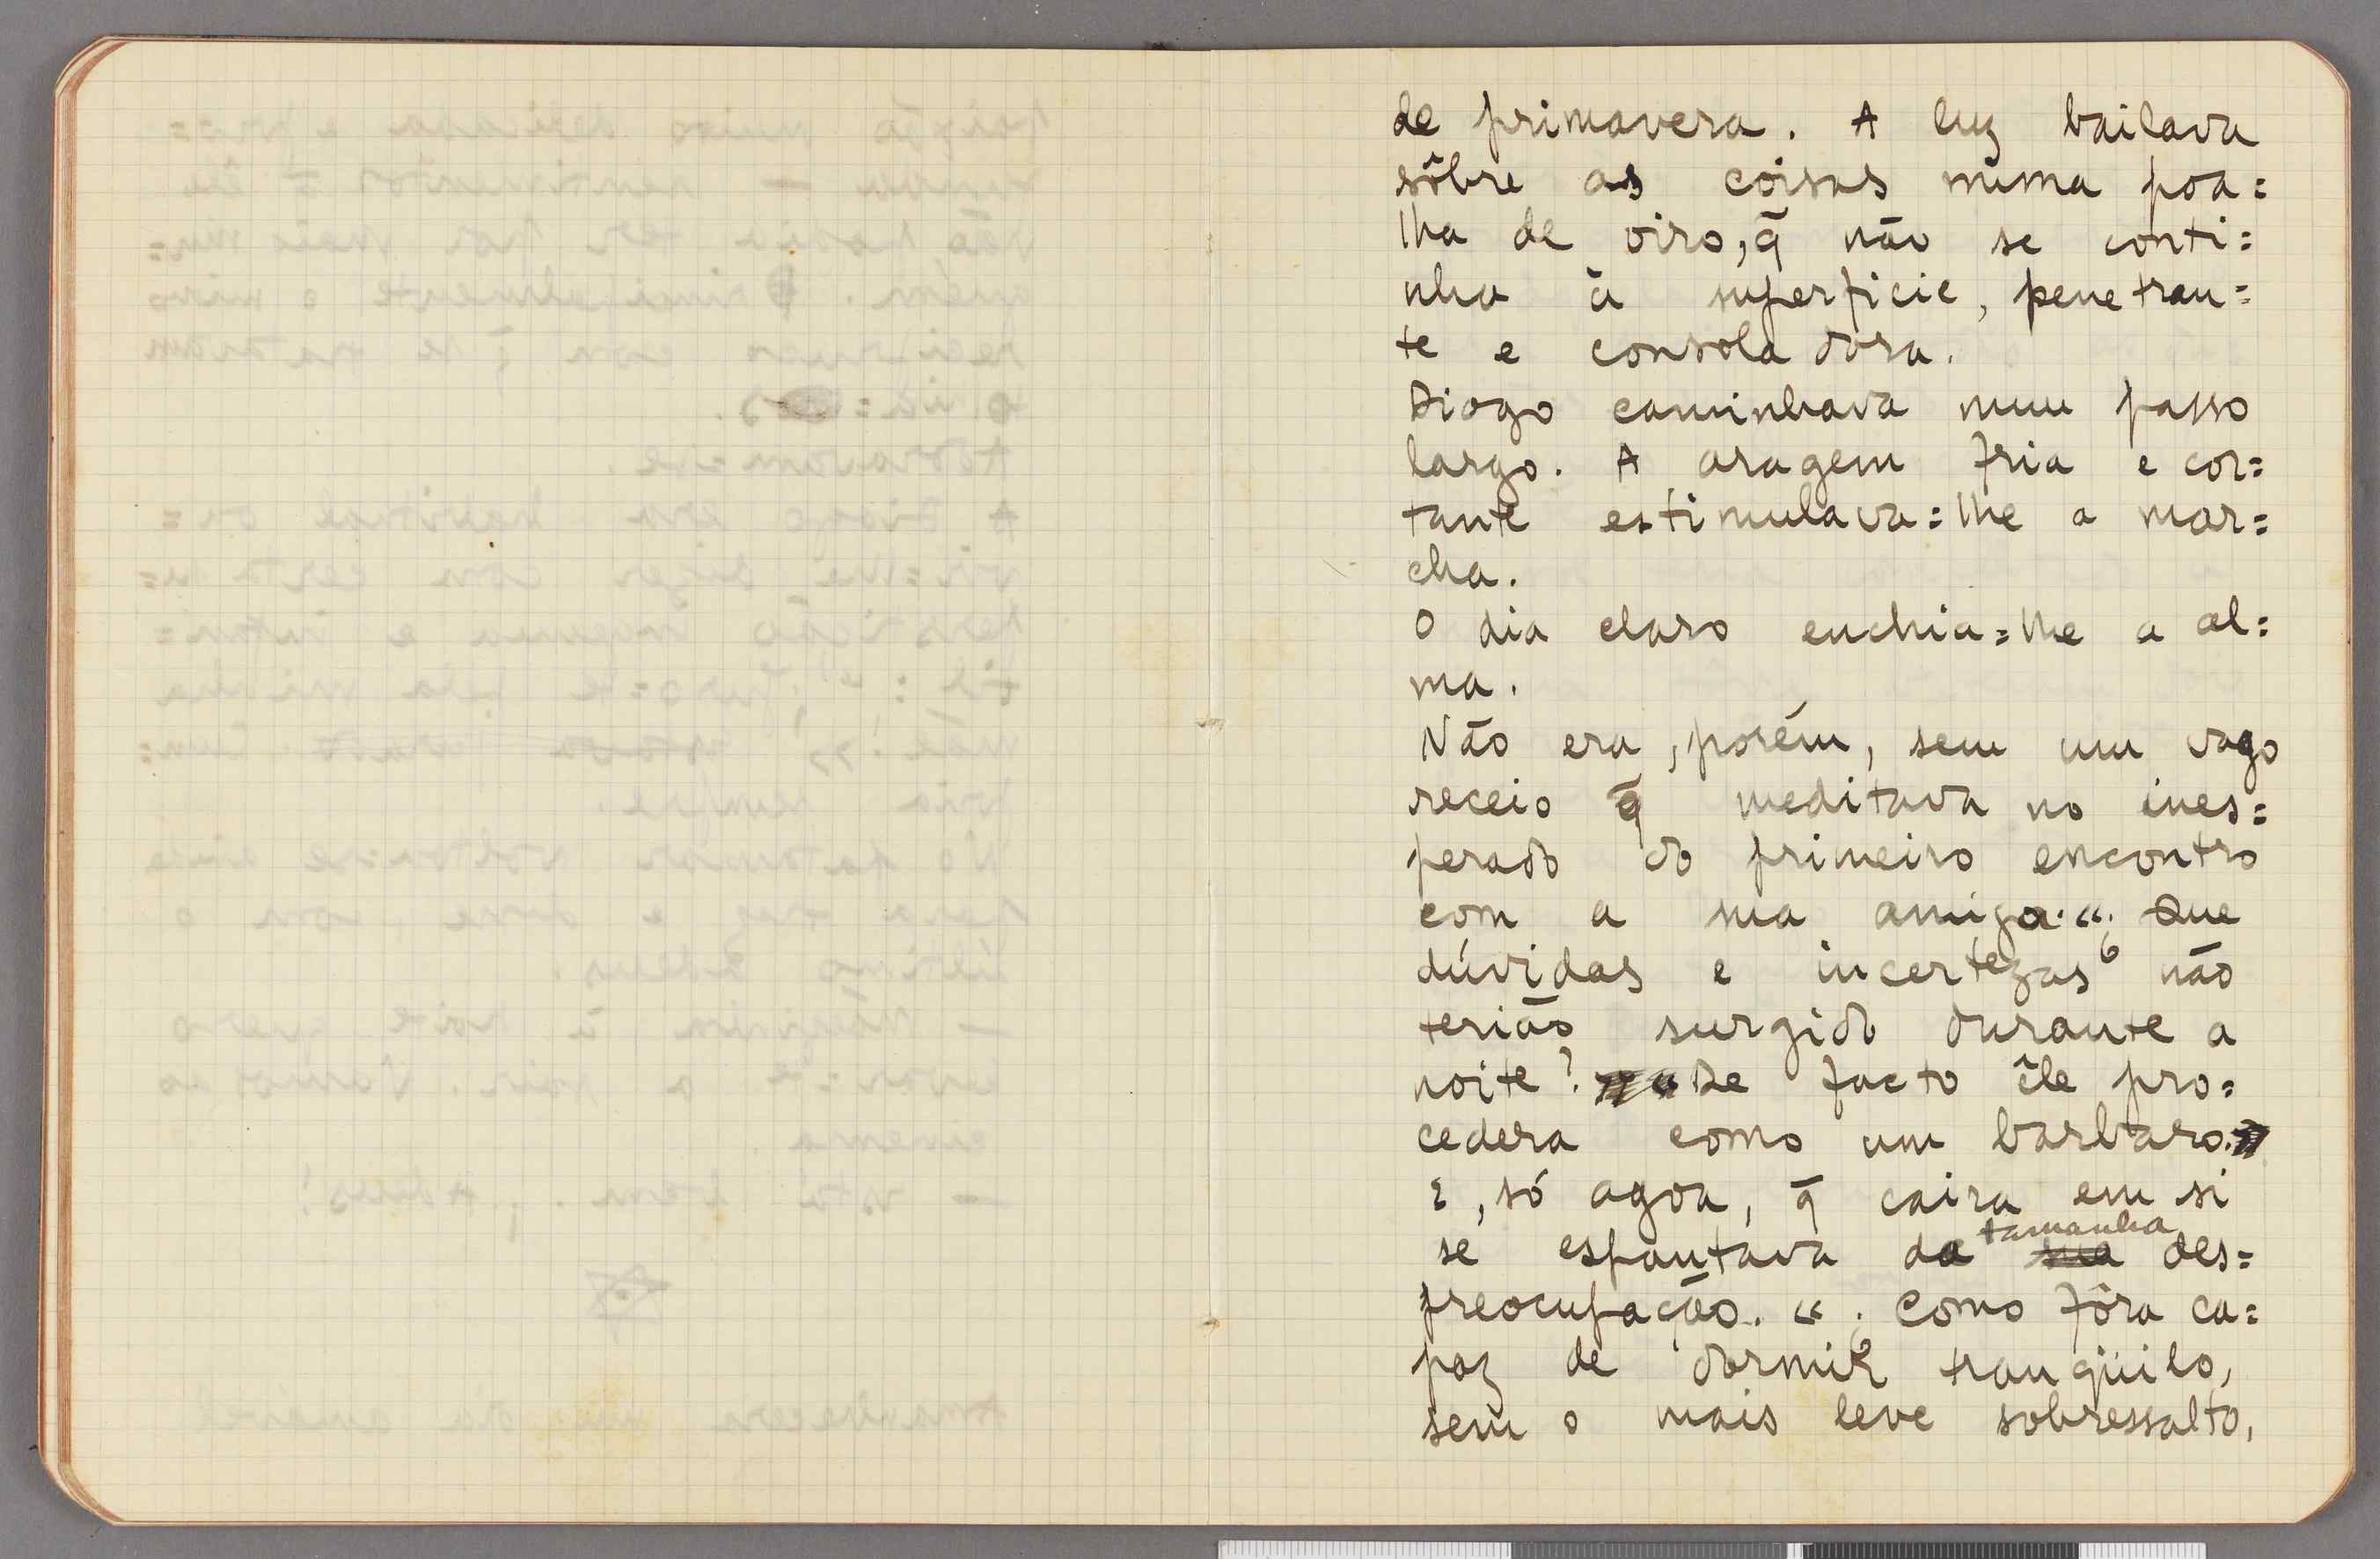 de primavera. A luz bailava
sôbre as coisas numa poa=
lha de oiro, q̄ não se conti=
nha à superficie, penetran=
te e consoladora.
Diogo caminhava num passo
largo. A aragem fria e cor=
tante estimulava=lhe a mar=
cha.
O dia claro enchia=lhe a al=
ma.
Não era, porém, sem um vago
receio q̄ meditava no ines=
perado do primeiro encontro
com a sua amiga. “¿Que
dúvidas e incertezas não
terião surgido durante a
noite? De facto êle pro=
cedera como um barbaro.
E, só agora, q̄ caira em si
se espantava da tamanha des=
preocupação. “¿Como fôra ca=
paz de dormir tranqüilo,
sem o mais leve sobressalto,